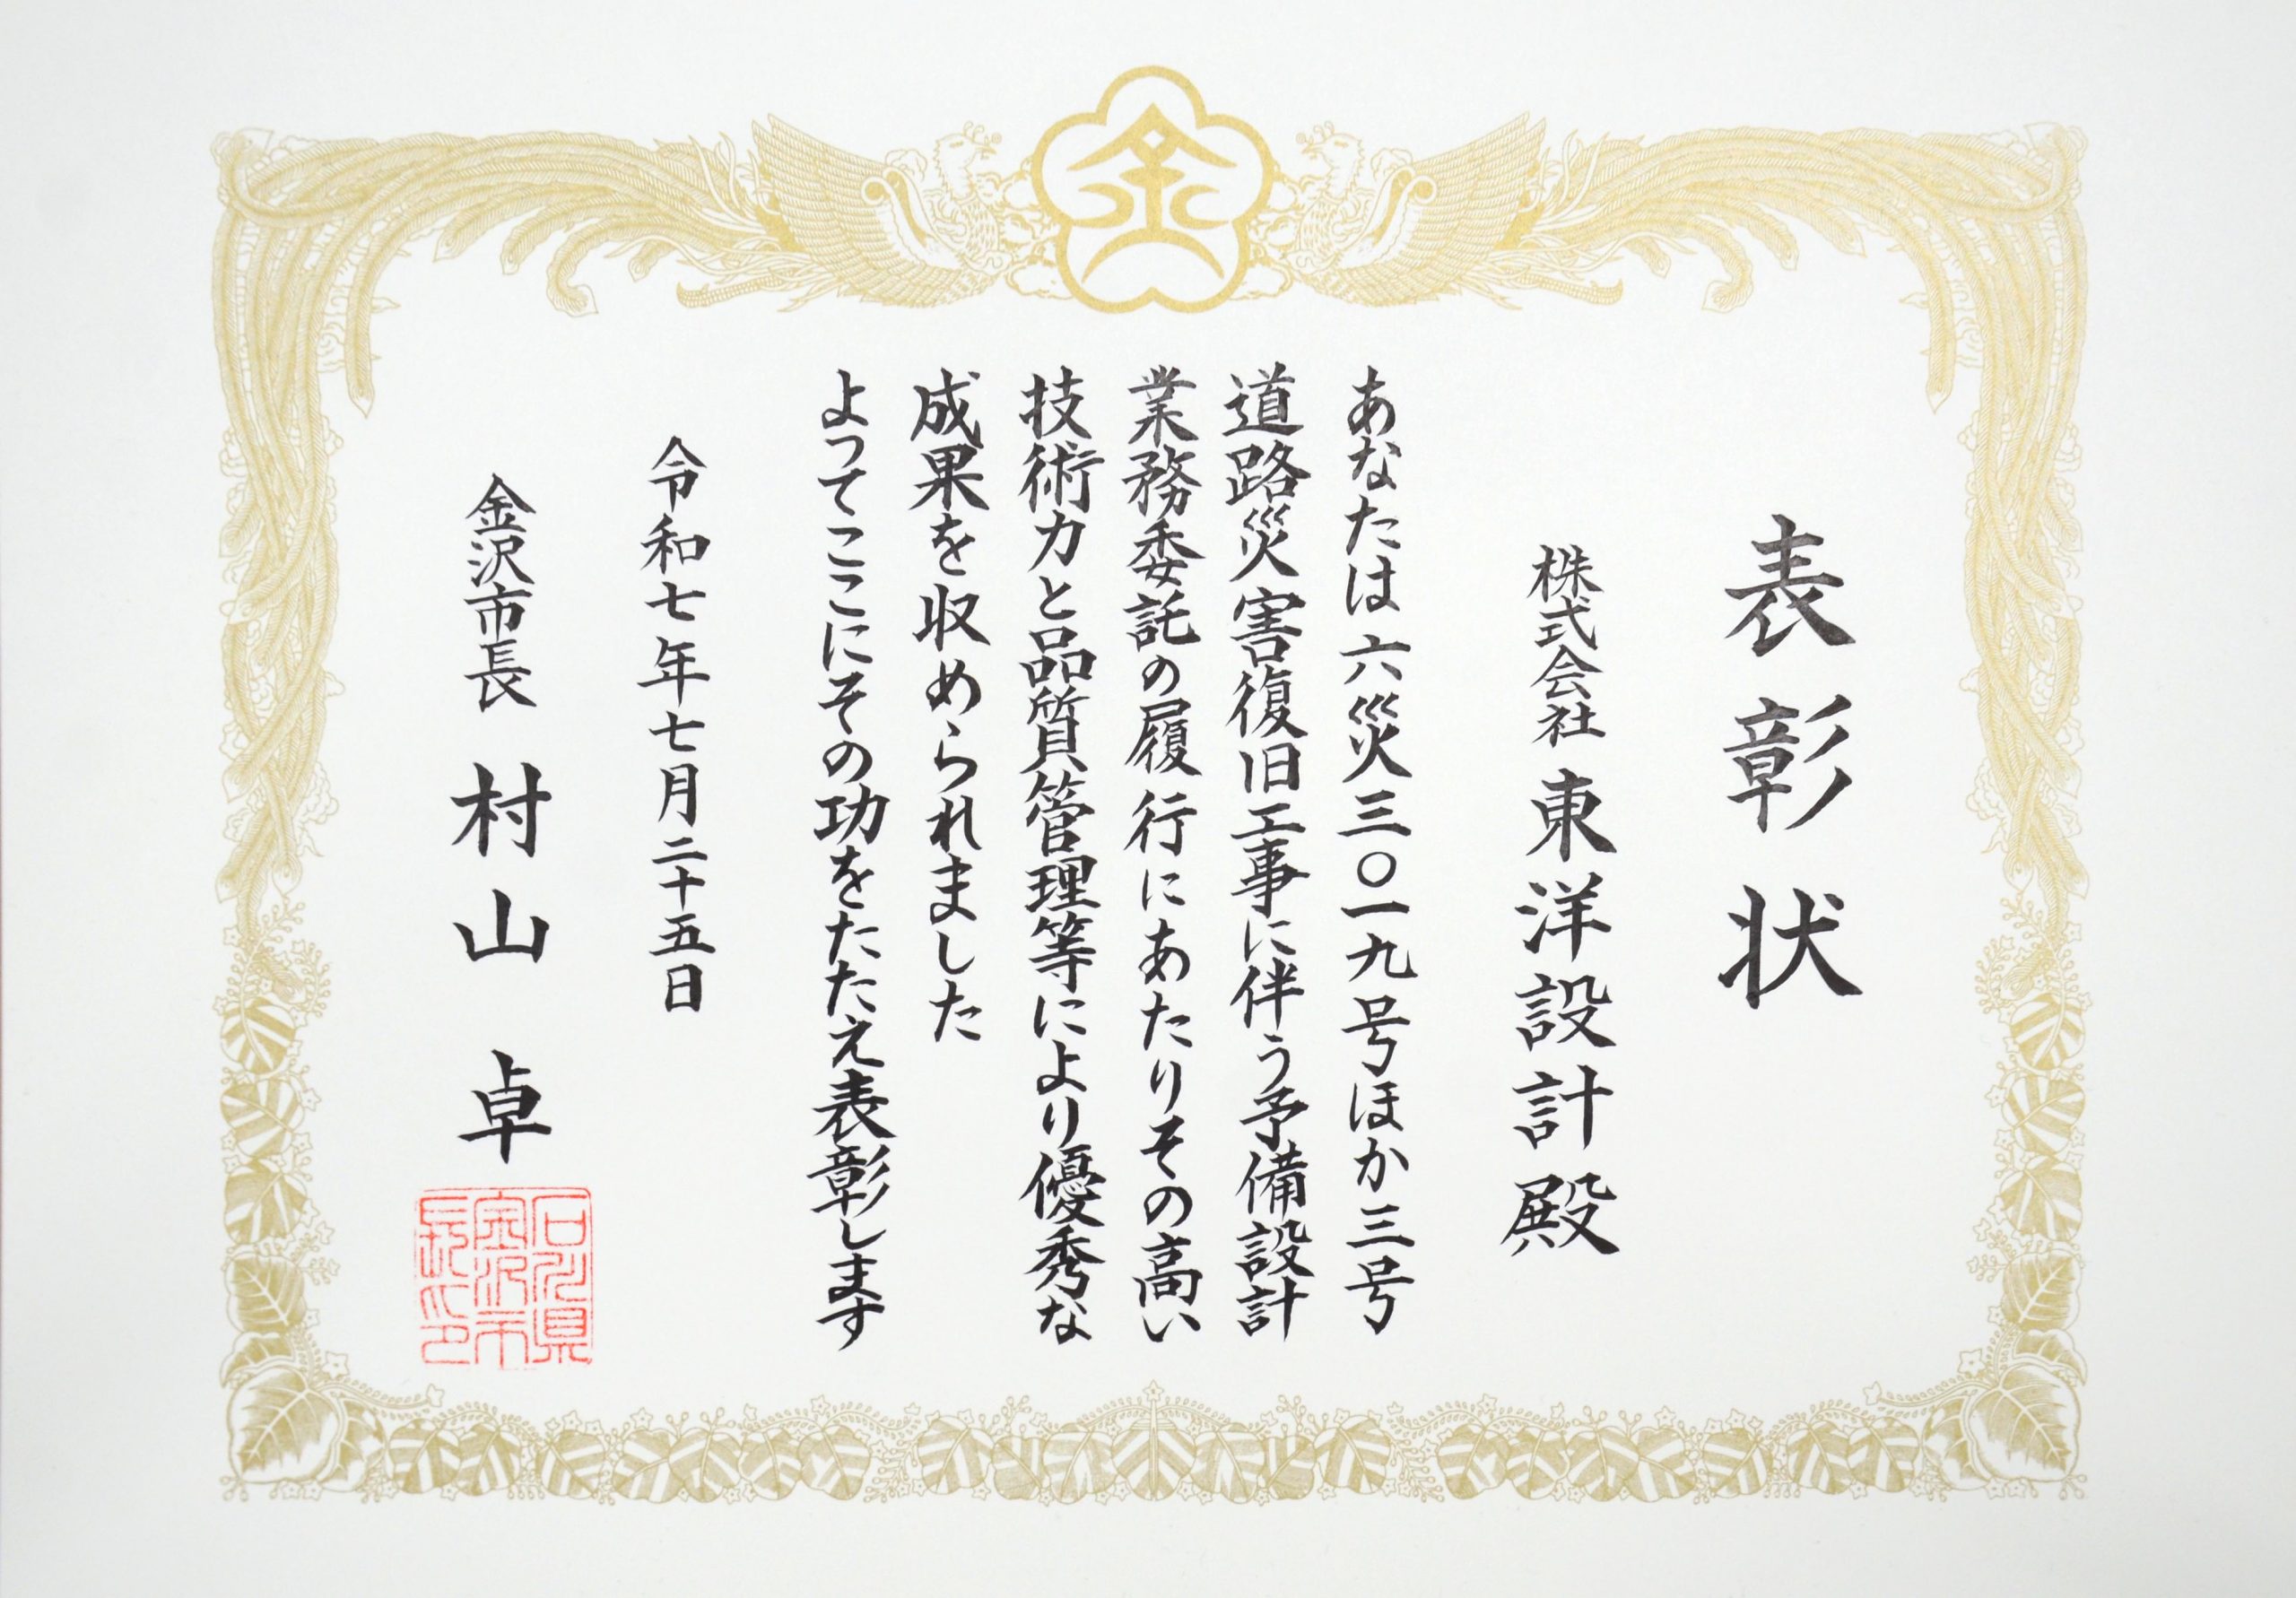 金
表彰状
株式会社東洋設計殿
あなたは六災三〇一九号ほか三号
道路災害復旧工事に伴う予備設計
業務委託の履行にあたりその高い
技術力と品質管理等により優秀な
成果を収められました
よってここにその功をたたえ表彰します
令和七年七月二十五日
金沢市長 村山 卓
石川県
金沢市
長之印